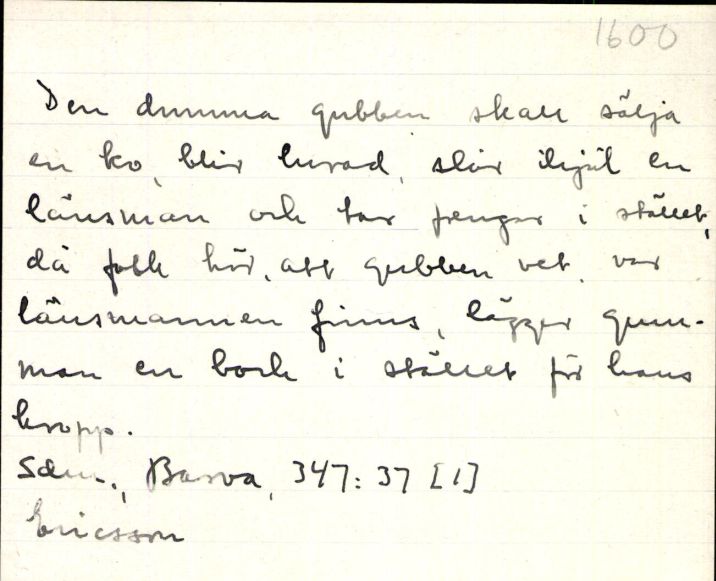 1600
Den dumma gubben skall sälja
en ko, blir lurad, slår ihjäl en
länsman och tar pengar i stället,
då folk hör, att gubben vet, var
länsmannen finns, lägger gum-
man en bock i stället för hans
kropp.
Sdm., Barva, 347: 37 [1]
Ericsson